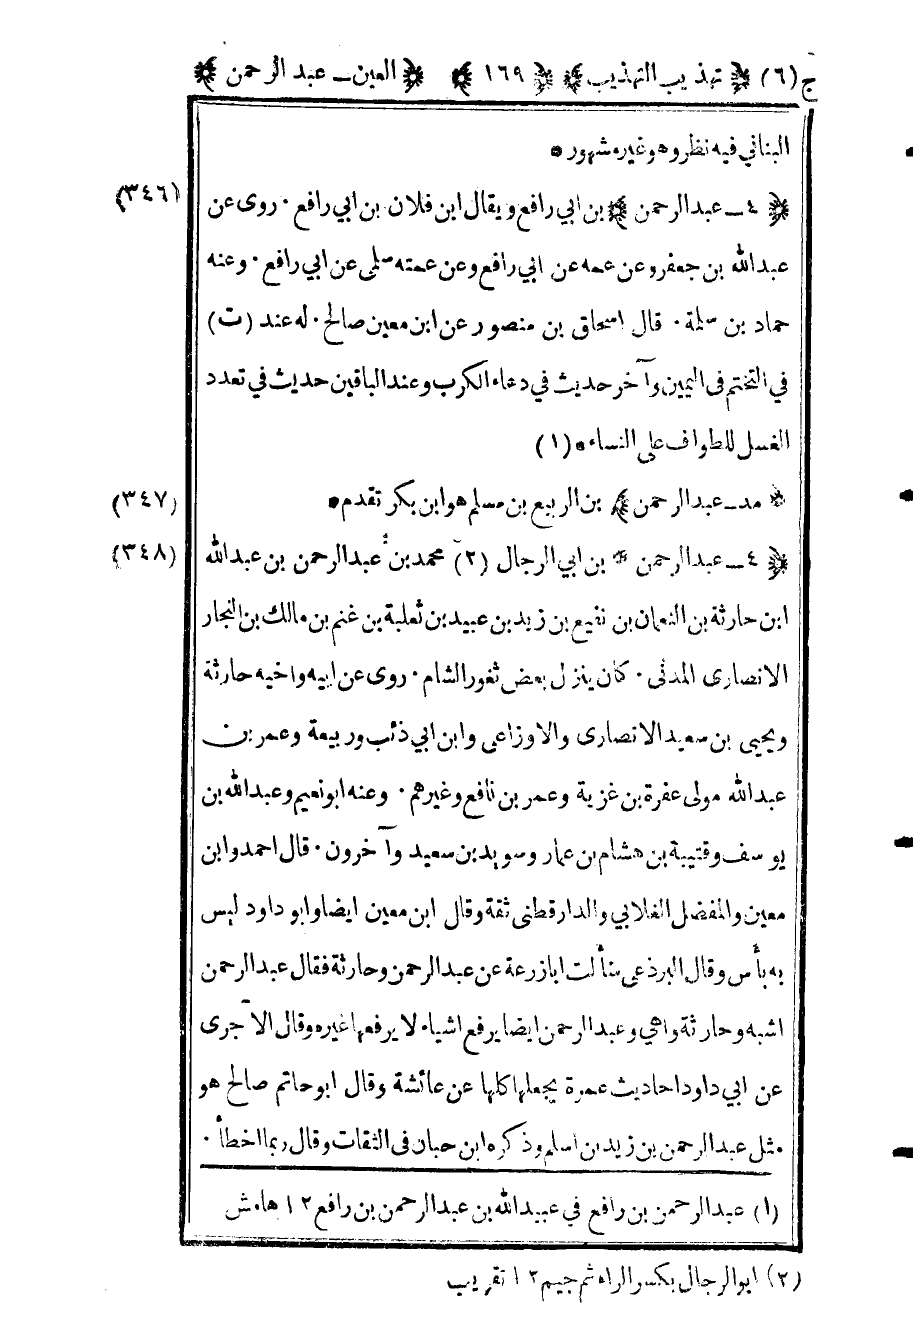 ج (٦) ﴿ تهذيب التهذيب ﴾ ﴿ ١٦٩ ﴾ ﴿ العين ــ عبد الرحمن ﴾
البناني فيه نظر وهو غير مشهور *
(٣٤٦) ﴿ ٤ ــ عبد الرحمن ﴾ بن ابي رافع ويقال ابن فلان بن ابي رافع · روى عن
عبد الله بن جعفر وعن عمه عن ابي رافع وعن عمته سلمى عن ابي رافع · وعنه
حماد بن سلمة · قال اسحاق بن منصور عن ابن معين صالح · له عند (ت)
في التختم فى اليمين وآخر حديث في دعاء الكرب وعند الباقين حديث في تعدد
الغسل للطواف على النساء * (١)
(٣٤٧) * مد ــ عبد الرحمن ﴾ بن الربيع بن مسلم هو ابن بكر تقدم *
(٣٤٨) ﴿ ٤ ــ عبد الرحمن * بن ابي الرجال (٢) محمد بن عبد الرحمن بن عبد الله
ابن حارثة بن النعمان بن نفيع بن زيد بن عبيد بن ثعلبة بن غنم بن مالك بن النجار
الانصارى المدنى · كان ينزل بعض ثغور الشام · روى عن ابيه واخيه حارثة
ويحيى بن سعيد الانصارى والاوزاعى وابن ابي ذئب وربيعة وعمر بن
عبد الله مولى عفرة بن غزية وعمر بن نافع وغيرهم · وعنه ابو نعيم وعبد الله بن
يوسف وقتيبة بن هشام بن عمار وسويد بن سعيد وآخرون · قال احمد وابن
معين والمفضل الغلابي والدار قطنى ثقة وقال ابن معين ايضا وابو داود ليس
به بأس وقال البرذعى سألت ابا زرعة عن عبد الرحمن وحارثة فقال عبد الرحمن
اشبه وحارثة واهي وعبد الرحمن ايضا يرفع اشياء لا يرفعها غيره وقال الآجرى
عن ابي داود احاديث عمرة يجعلها كلها عن عائشة وقال ابو حاتم صالح هو
مثل عبد الرحمن بن زيد بن اسلم وذكره ابن حبان فى الثقات وقال ربما اخطأ ·
(١) عبد الرحمن بن رافع في عبيد الله بن عبد الرحمن بن رافع ١٢ هامش
(٢) ابو الرجال بكسر الراء ثم جيم ١٢ تقريب